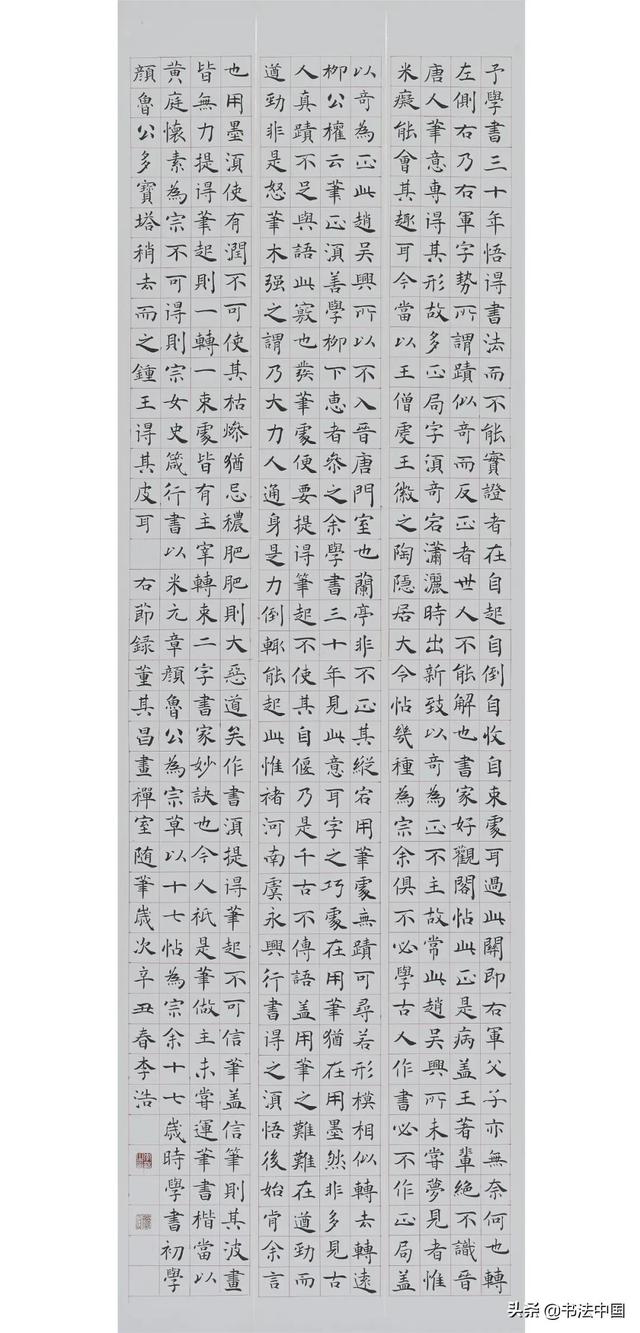 予學書三十年悟得書法而不能實證者在自起自倒自收自束處耳過此關即右軍父子亦無奈何也轉
左側右乃右軍字勢所謂蹟似奇而反正者世人不能解也書家好觀閣帖此正是病盖王著輩絕不識晉
唐人筆意專得其形故多正局字湏奇宕瀟灑時出新致以奇為正不主故常此趙吳興所未嘗夢見者惟
米癡能會其趣耳今當以王僧虔王徽之陶隱居大令帖幾種為宗余俱不必學古人作書必不作正局盖
以奇為正此趙吳興所以不入晉唐門室也蘭亭非不正其縱宕用筆處無蹟可尋若形模相似轉去轉遠
柳公權云筆正湏善學柳下惠者參之余學書三十年見此意耳字之巧處在用筆猶在用墨然非多見古
人真蹟不足與語此竅也發筆處便要提得筆起不使其自偃乃是千古不傳語盖用筆之難難在遒勁而
遒勁非是怒筆木强之謂乃大力人通身是力倒輒能起此惟褚河南虞永興行書得之湏悟後始肯余言
也用墨湏使有潤不可使其枯燥猶忌穠肥肥則大惡道矣作書湏提得筆起不可信筆盖信筆則其波畫
皆無力提得筆起則一轉一束處皆有主宰轉束二字書家妙訣也今人祇是筆做主未嘗運筆書楷當以
黄庭懷素為宗不可得則宗女史箴行書以米元章顏魯公為宗草以十七帖為宗余十七歲時學書初學
顏魯公多寶塔稍去而之鍾王得其皮耳 右節録董其昌畫禪室随筆歲次辛丑春李浩
头条 @书法中国